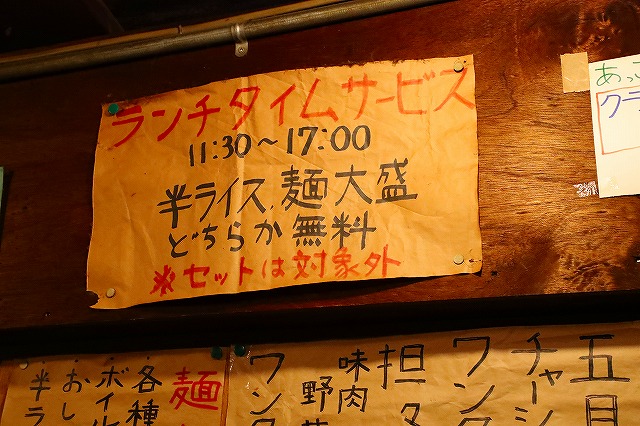 ランチタイムサービス
11:30〜17:00
半ライス、麺大盛
どちらか無料
※セットは対象外
あっ
クラ
五目
チャーシ
ワンタ
担々
味肉
野菜
ワンタ
麺
各種
ボイル
おし
半ラ